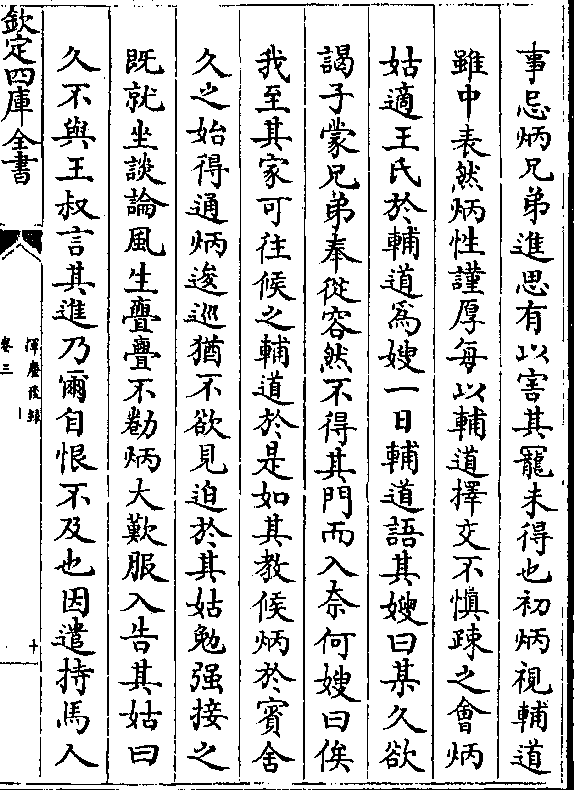 事忌炳兄弟進思有以害其寵未得也初炳視輔道
雖中表然炳性謹厚每以輔道擇交不慎踈之會炳
姑適王氏於輔道爲嫂一日輔道語其嫂曰某久欲
謁子蒙兄弟奉從容然不得其門而入奈何嫂曰俟
我至其家可往候之輔道於是如其教候炳於賓舍
久之始得通炳逡巡猶不欲見迫於其姑勉强接之
既就坐談論風生亹亹不勌炳大歎服入告其姑曰
久不與王叔言其進乃爾自恨不及也因遣持馬人
欽定四庫全書
揮麈後錄
卷三
十